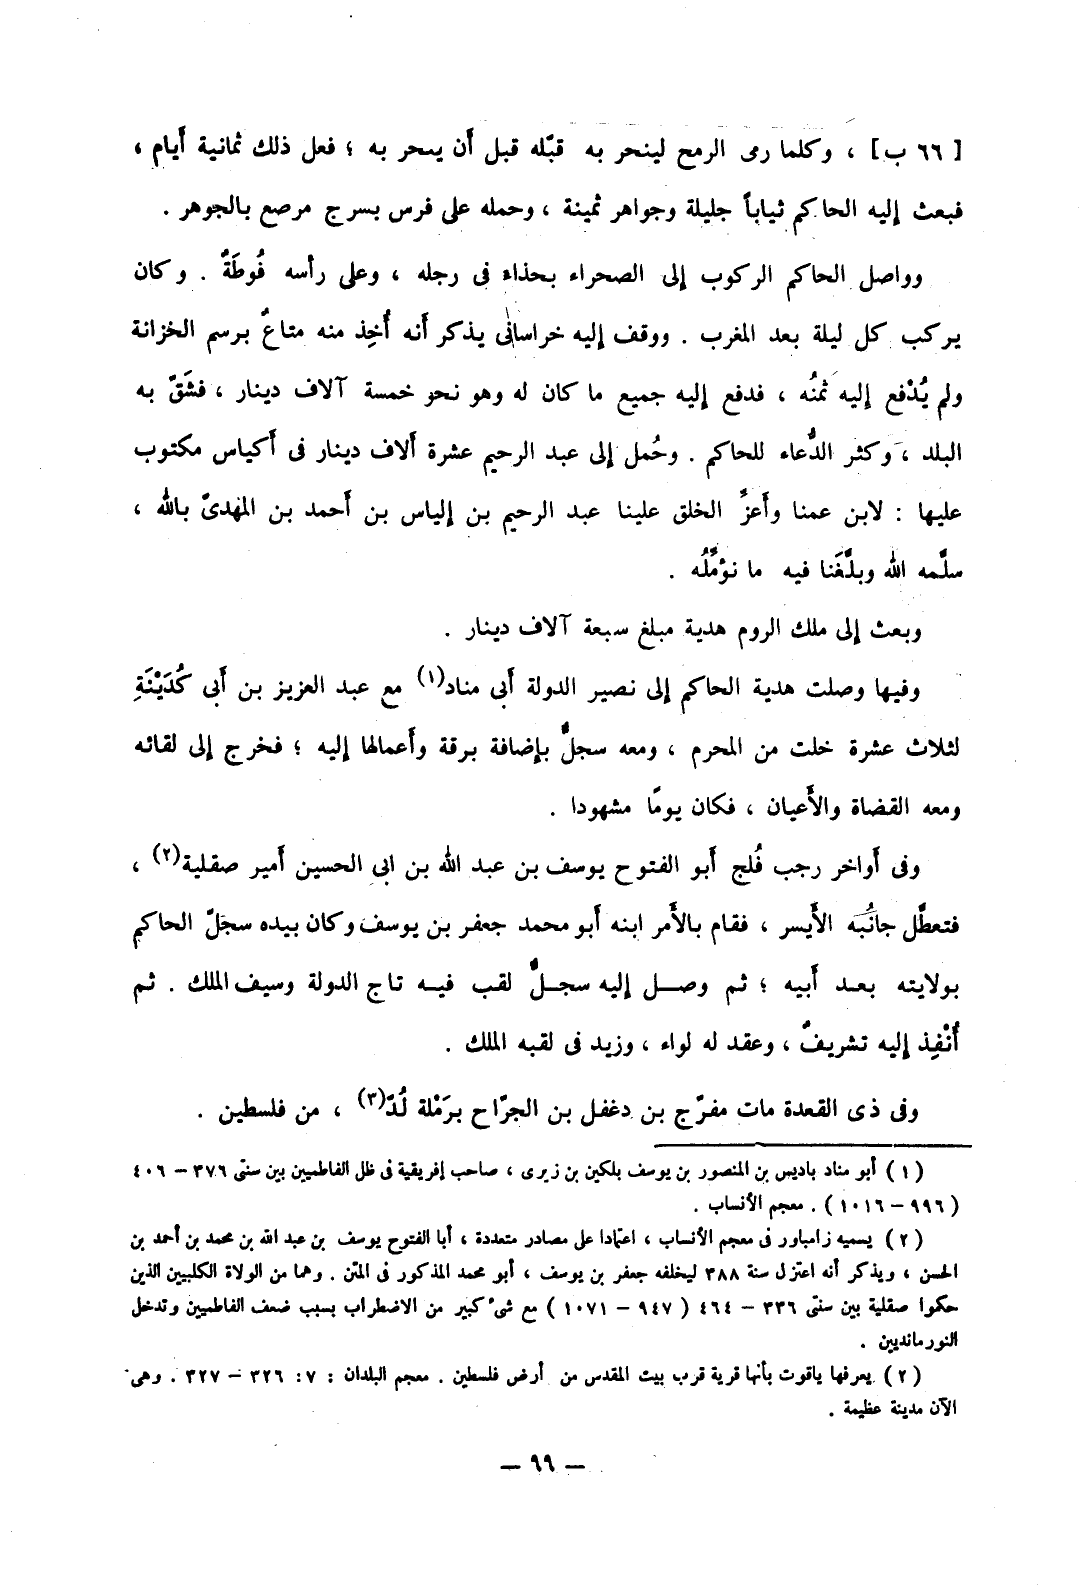 [ ٦٦ ب ] ، وكلما رمى الرمح لينحر به قبّله قبل أن ينحر به ؛ فعل ذلك ثمانية أيام ،
فبعث إليه الحاكم ثياباً جليلة وجواهر ثمينة ، وحمله على فرس بسرج مرصع بالجوهر .
وواصل الحاكم الركوب إلى الصحراء بحذاء فى رجله ، وعلى رأسه فُوطَةٌ . وكان
يركب كل ليلة بعد المغرب . ووقف إليه خراسانى يذكر أنه أُخِذ منه متاعٌ برسم الخزانة
ولم يُدْفع إليه ثمنُه ، فدفع إليه جميع ما كان له وهو نحو خمسة آلاف دينار ، فشَقّ به
البلد ، وكثر الدُّعاء للحاكم . وحُمل إلى عبد الرحيم عشرة ألاف دينار فى أكياس مكتوب
عليها : لابن عمنا وأعزِّ الخلق علينا عبد الرحيم بن إلياس بن أحمد بن المهدىّ بالله ،
سلَّمه الله وبلَّغَنا فيه ما نؤمِّلُه .
وبعث إلى ملك الروم هدية مبلغ سبعة آلاف دينار .
وفيها وصلت هدية الحاكم إلى نصير الدولة أبى مناد(١) مع عبد العزيز بن أبى كُدَيْنَةِ
لثلاث عشرة خلت من المحرم ، ومعه سجلٌّ بإضافة برقة وأعمالها إليه ؛ فخرج إلى لقائه
ومعه القضاة والأعيان ، فكان يومًا مشهودا .
وفى أواخر رجب فُلج أبو الفتوح يوسف بن عبد الله بن ابى الحسين أمير صقلية(٢) ،
فتعطَّل جانُبه الأيسر ، فقام بالأمر ابنه أبو محمد جعفر بن يوسف وكان بيده سجلّ الحاكم
بولايته بعد أبيه ؛ ثم وصل إليه سجلٌّ لقب فيه تاج الدولة وسيف الملك . ثم
أُنْفِذ إليه تشريفٌ ، وعقد له لواء ، وزيد فى لقبه الملك .
وفى ذى القعدة مات مفرّج بن دغفل بن الجرّاح برَمْلة لُدّ(٣) ، من فلسطين .
( ١ ) أبو مناد باديس بن المنصور بن يوسف بلكين بن زيرى ، صاحب إفريقية فى ظل الفاطميين بين سنتى ٣٧٦ – ٤٠٦
( ٩٩٦ – ١٠١٦ ) . معجم الأنساب .
( ٢ ) يسميه زامباور فى معجم الأنساب ، اعتمادا على مصادر متعددة ، أبا الفتوح يوسف بن عبد الله بن محمد بن أحمد بن
الحسن ، ويذكر أنه اعتزل سنة ٣٨٨ ليخلفه جعفر بن يوسف ، أبو محمد المذكور فى المتن . وهما من الولاة الكلبيين الذين
حكموا صقلية بين سنتى ٣٣٦ – ٤٦٤ ( ٩٤٧ – ١٠٧١ ) مع شىء كبير من الاضطراب بسبب ضعف الفاطميين وتدخل
النورمانديين .
( ٢ ) يعرفها ياقوت بأنها قرية قرب بيت المقدس من أرض فلسطين . معجم البلدان : ٧ : ٣٢٦ – ٣٢٧ . وهى
الآن مدينة عظيمة .
— ٦٦ —